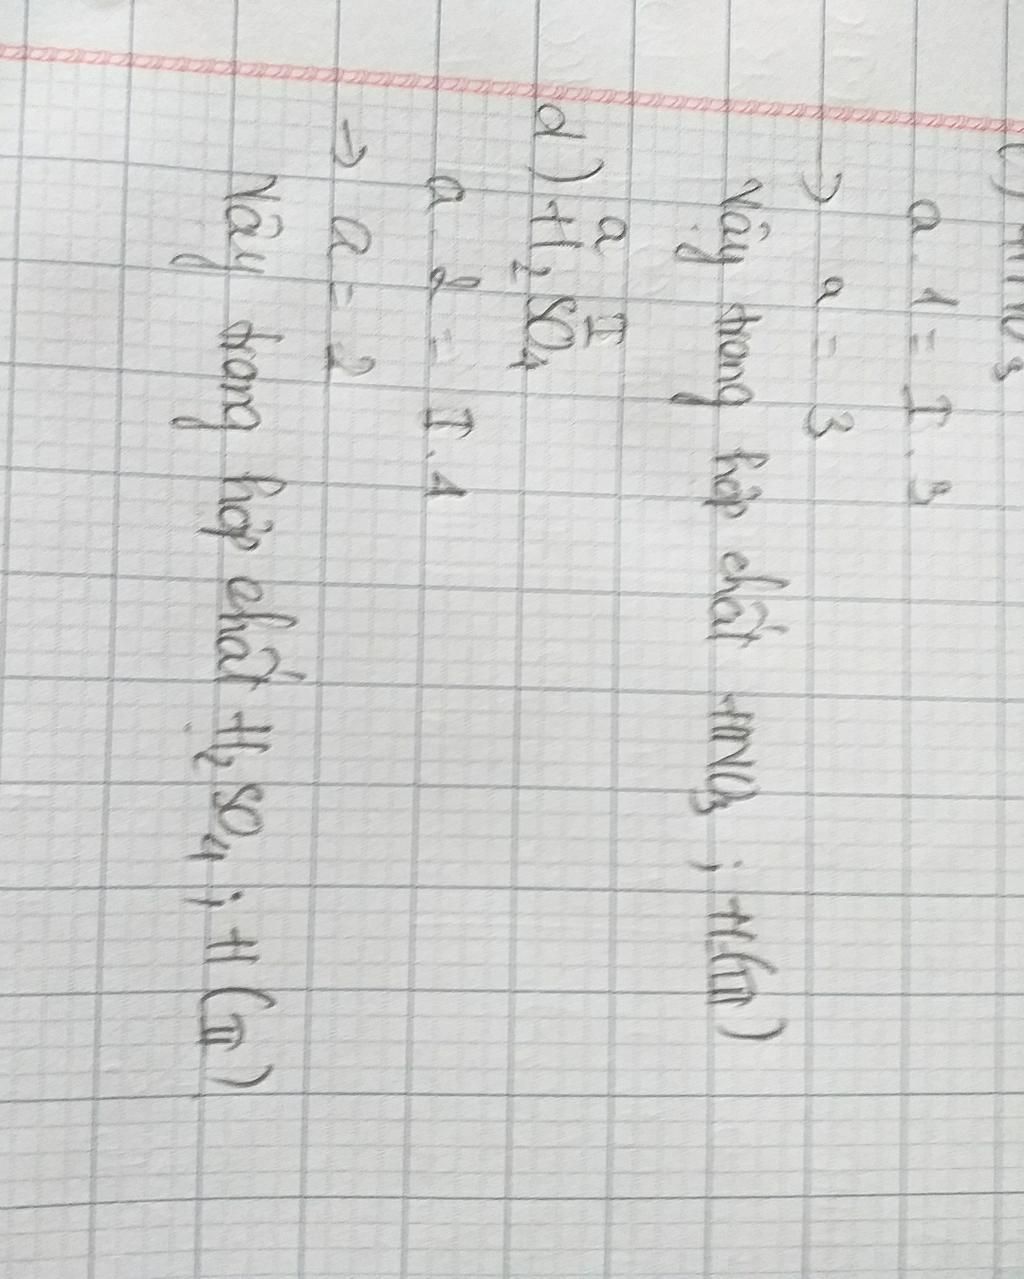 c) HNO3
a. 1 = I. 3
→ a = 3
Vậy trong hợp chất HNO3 ; H (III)
a I
d) H2SO4
a. 2 = I. 1
→ a = 2
Vậy trong hợp chất H2SO4 ; H (II)